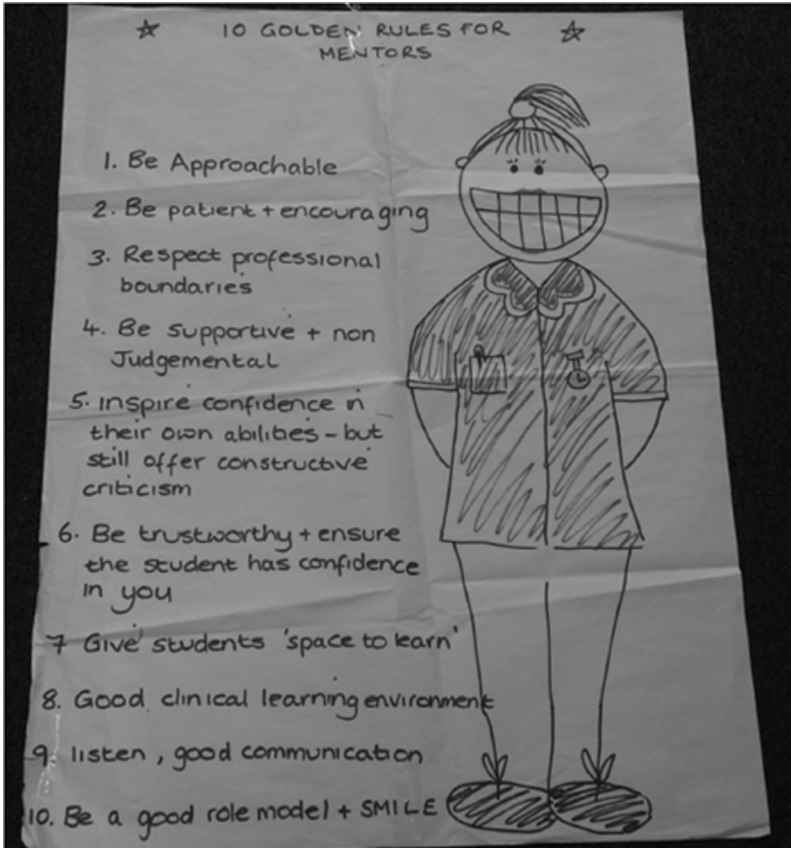 10 GOLDEN RULES FOR
MENTORS
1. Be Approachable
2. Be patient + encouraging
3. Respect professional
boundaries
4. Be supportive + non
Judgemental
5. Inspire confidence in
their own abilities - but
still offer constructive
criticism
6. Be trustworthy + ensure
the student has confidence
in you
7 Give students 'space to learn'
8. Good clinical learning environment
9. listen, good communication
10. Be a good role model + SMILE